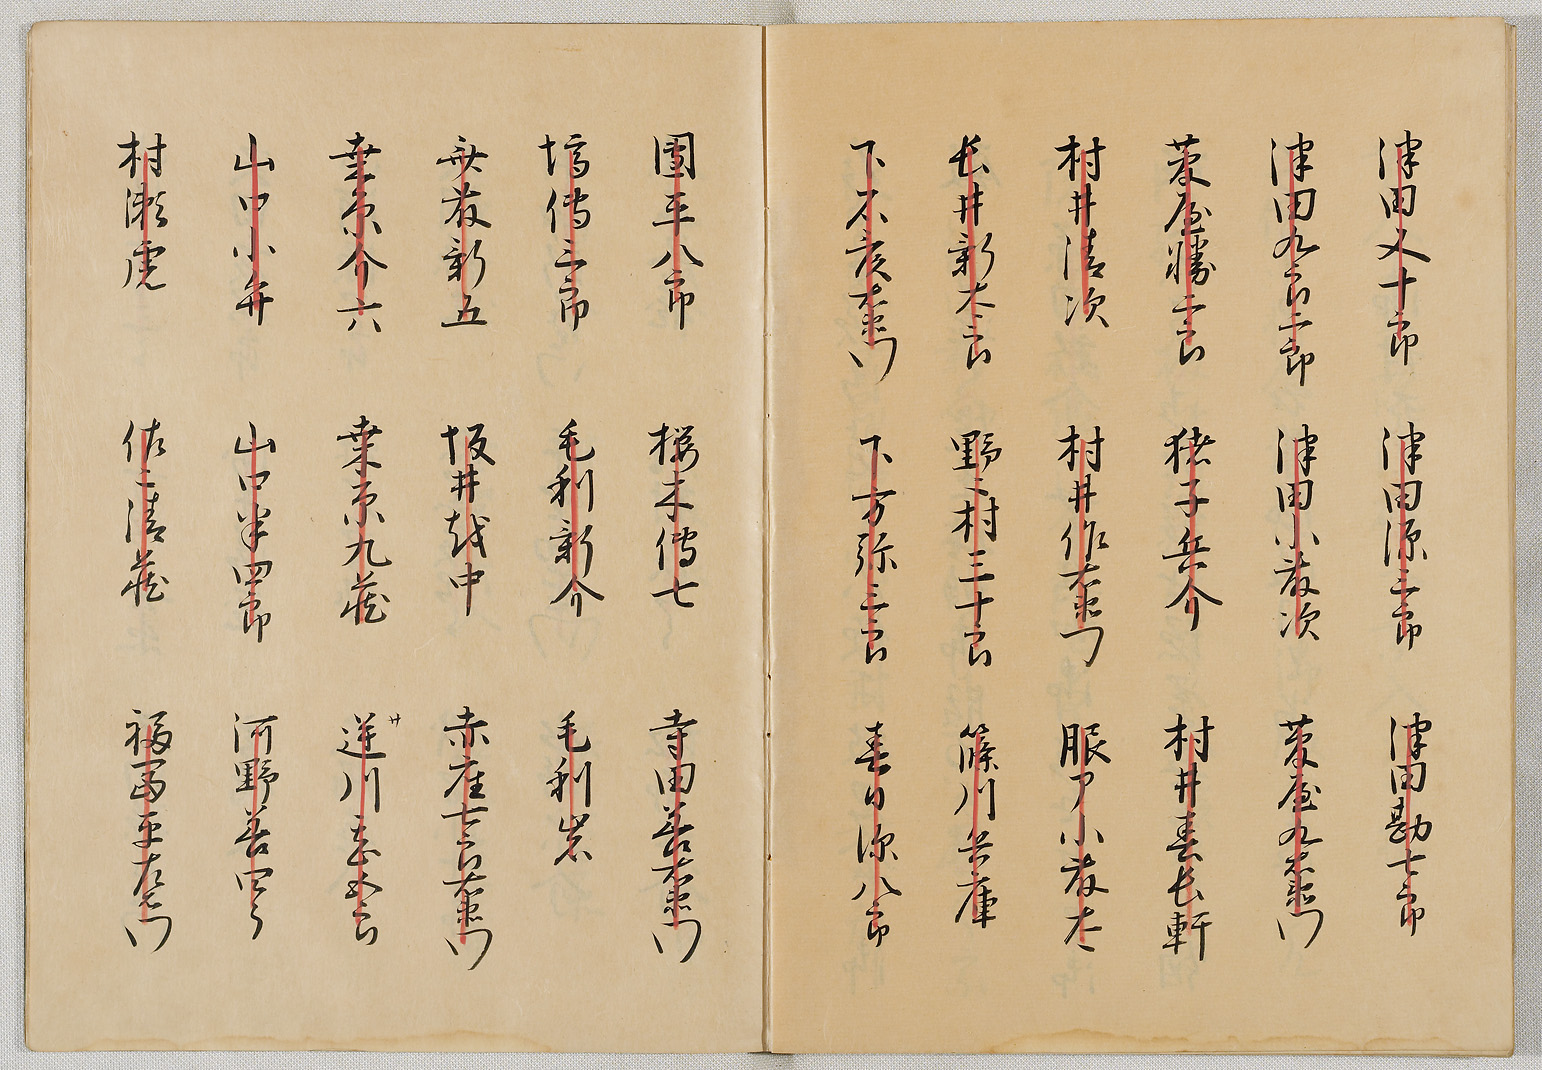 津田又十郎
津田源三郎
津田勘七郎
津田九郎二郎
津田小藤次
菅屋九右衛門
菅屋勝二郎
猪子兵介
村井春長軒
村井清次
村井作右衛門
服部小藤太
長井新太郎
野々村三十郎
篠川兵庫
下石彦右衛門
下方弥三郎
春日源八郎
團平八郎
桜木傳七
寺田善右衛門
塙傳三郎
毛利新介
毛利岩
斎藤新五
坂井越中
赤座七郎右衛門
桑原介六
桑原九蔵
逆川甚五郎
サ
山口小弁
山口半四郎
河野善四郎
村瀬虎
佐々清蔵
福富平左衛門